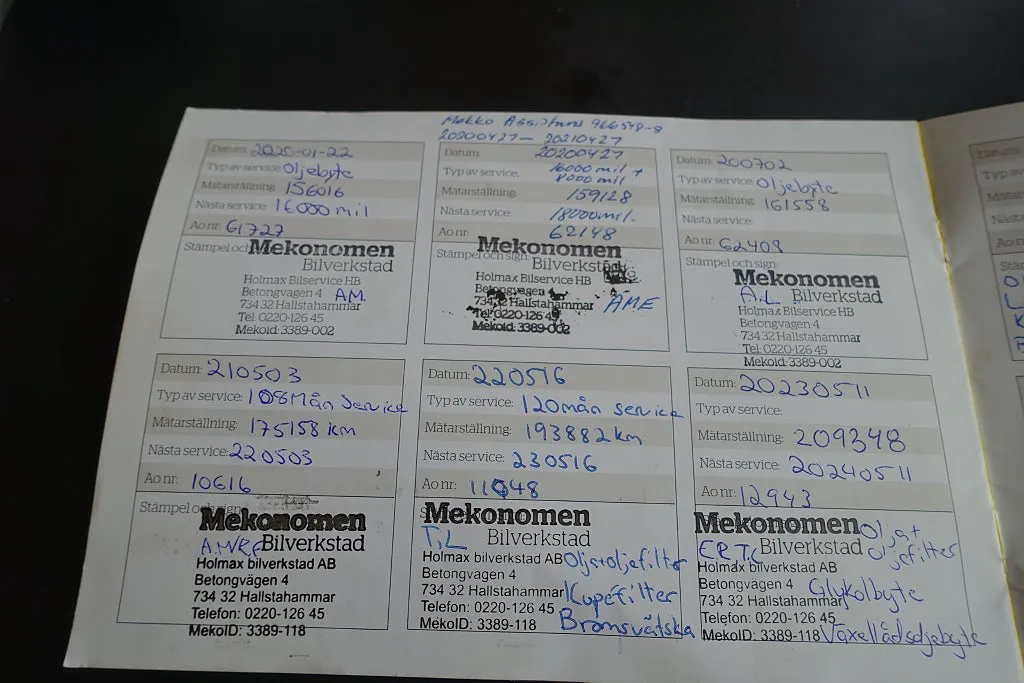 Mekko Assistans 966548-8
20200427 — 20210427
Datum: 2020-01-22
Typ av service: Oljebyte
Mätarställning: 156016
Nästa service: 16000 mil
Ao nr: 61727
Stämpel och
Mekonomen
Bilverkstad
Holmax Bilservice HB
Betongvägen 4 A.M.
734 32 Hallstahammar
Tel: 0220-126 45
Mekoid: 3389-002
Datum 20200427
Typ av service: 16000 mil +
8000 mil
Mätarställning: 159128
Nästa service: 18000 mil.
Ao nr: 62148
Stämpel och sign:
Mekonomen
Bilverkstad
Holmax Bilservice HB
Betongvagen 4
734 32 Hallstahammar ÅME
Tel: 0220-126 45
Mekoid: 3389-002
Datum: 200702
Typ av service: Oljebyte
Mätarställning: 161558
Nästa service:
Ao nr: 62408
Stämpel och sign:
Mekonomen
A.L Bilverkstad
Holmax Bilservice HB
Betongvägen 4
734 32 Hallstahammar
Tel: 0220-126 45
Mekoid: 3389-002
Datum: 210503
Typ av service: 108Mån Service
Mätarställning: 175158 km
Nästa service: 220503
Ao nr: 10616
Stämpel och sign:
Mekonomen
Bilverkstad
Holmax bilverkstad AB
Betongvägen 4
734 32 Hallstahammar
Telefon: 0220-126 45
MekoID: 3389-118
Datum: 220516
Typ av service: 120mån service
Mätarställning: 193882 km
Nästa service: 230516
Ao nr: 11048
Mekonomen
T,L Bilverkstad
Holmax bilverkstad AB Olja+oljefilter
Betongvagen 4
734 32 Hallstahammar Kupefilter
Telefon: 0220-126 45
MekoID: 3389-118 Bromsvätska
Datum: 20230511
Typ av service:
Mätarställning: 209348
Nästa service: 20240511
Ao nr: 12943
Mekonomen Olja+
Bilverkstad oljefilter
Holmax bilverkstad AB
Betongvägen 4 Glykolbyte
734 32 Hallstahammar
Telefon: 0220-126 45
MekoID: 3389-118 Växellådsoljebyte